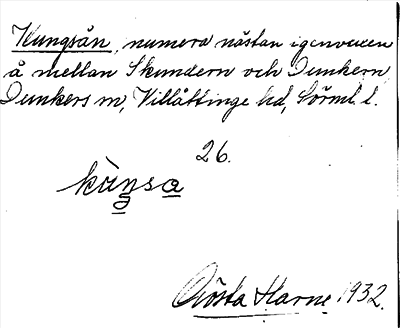 Kungsån, numera nästan igenvuxen
å mellan Skundern och Dunkern,
Dunkers sn, Villåttinge hd, Sörml. l.
26.
kùnsa
Gösta Harne 1932.